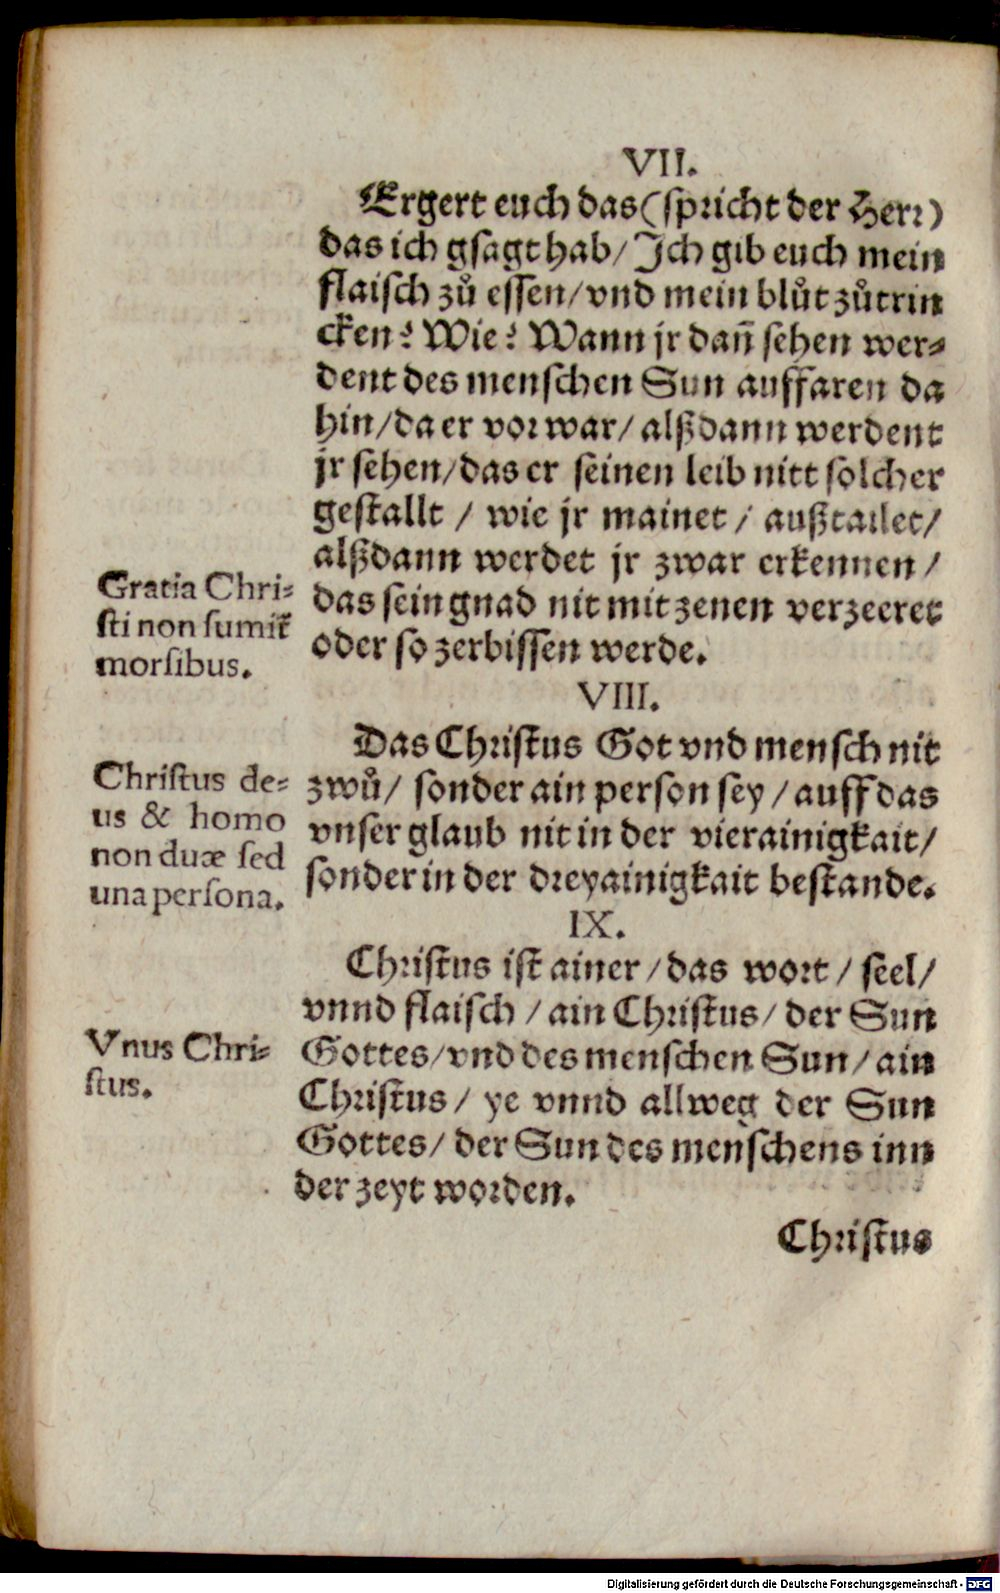 VII.
Ergert euch das (spricht der Herr)
das ich gsagt hab / Ich gib euch mein
flaisch zů essen / vnd mein blůt zůtrin
cken? Wie? Wann jr dañ sehen wer⸗
dent des menschen Sun auffaren da
hin / da er vor war / alßdann werdent
jr sehen / das er seinen leib nitt solcher
gestallt / wie jr mainet / außtailet /
alßdann werdet jr zwar erkennen /
das sein gnad nit mit zenen verzeeret
oder so zerbissen werde.
Gratia Chri⸗
sti non sumit̃
morsibus.
VIII.
Das Christus Got vnd mensch nit
zwů / sonder ain person sey / auff das
vnser glaub nit in der vierainigkait /
sonder in der dreyainigkait bestande.
Christus de⸗
us & homo
non duæ sed
una persona.
IX.
Christus ist ainer / das wort / seel /
vnnd flaisch / ain Christus / der Sun
Gottes / vnd des menschen Sun / ain
Christus / ye vnnd allweg der Sun
Gottes / der Sun des menschens inn
der zeyt worden.
Vnus Chri⸗
stus.
Christus
Digitalisierung gefördert durch die Deutsche Forschungsgemeinschaft - DFG